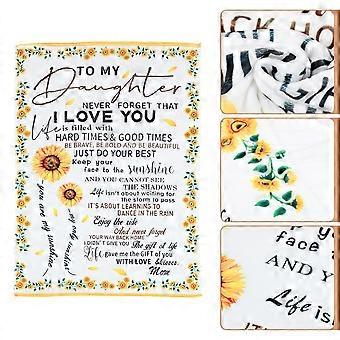 TO MY
Daughter
NEVER FORGET THAT
I LOVE YOU
Life is filled with
HARD TIMES & GOOD TIMES
BE BRAVE, BE BOLD AND BE BEAUTIFUL
JUST DO YOUR BEST
Keep your
face to the sunshine
AND YOU CANNOT SEE
THE SHADOWS
Life isn't about waiting for
the storm to pass
IT'S ABOUT LEARNING TO
DANCE IN THE RAIN
Enjoy the ride
And never forget
YOUR WAY BACK HOME
I DIDN'T GIVE YOU The gift of life
Life gave me the GIFT OF YOU
WITH LOVE & kisses,
Mom
you are my sunshine
my only sunshine
CK HO
face
AND Y
Life is